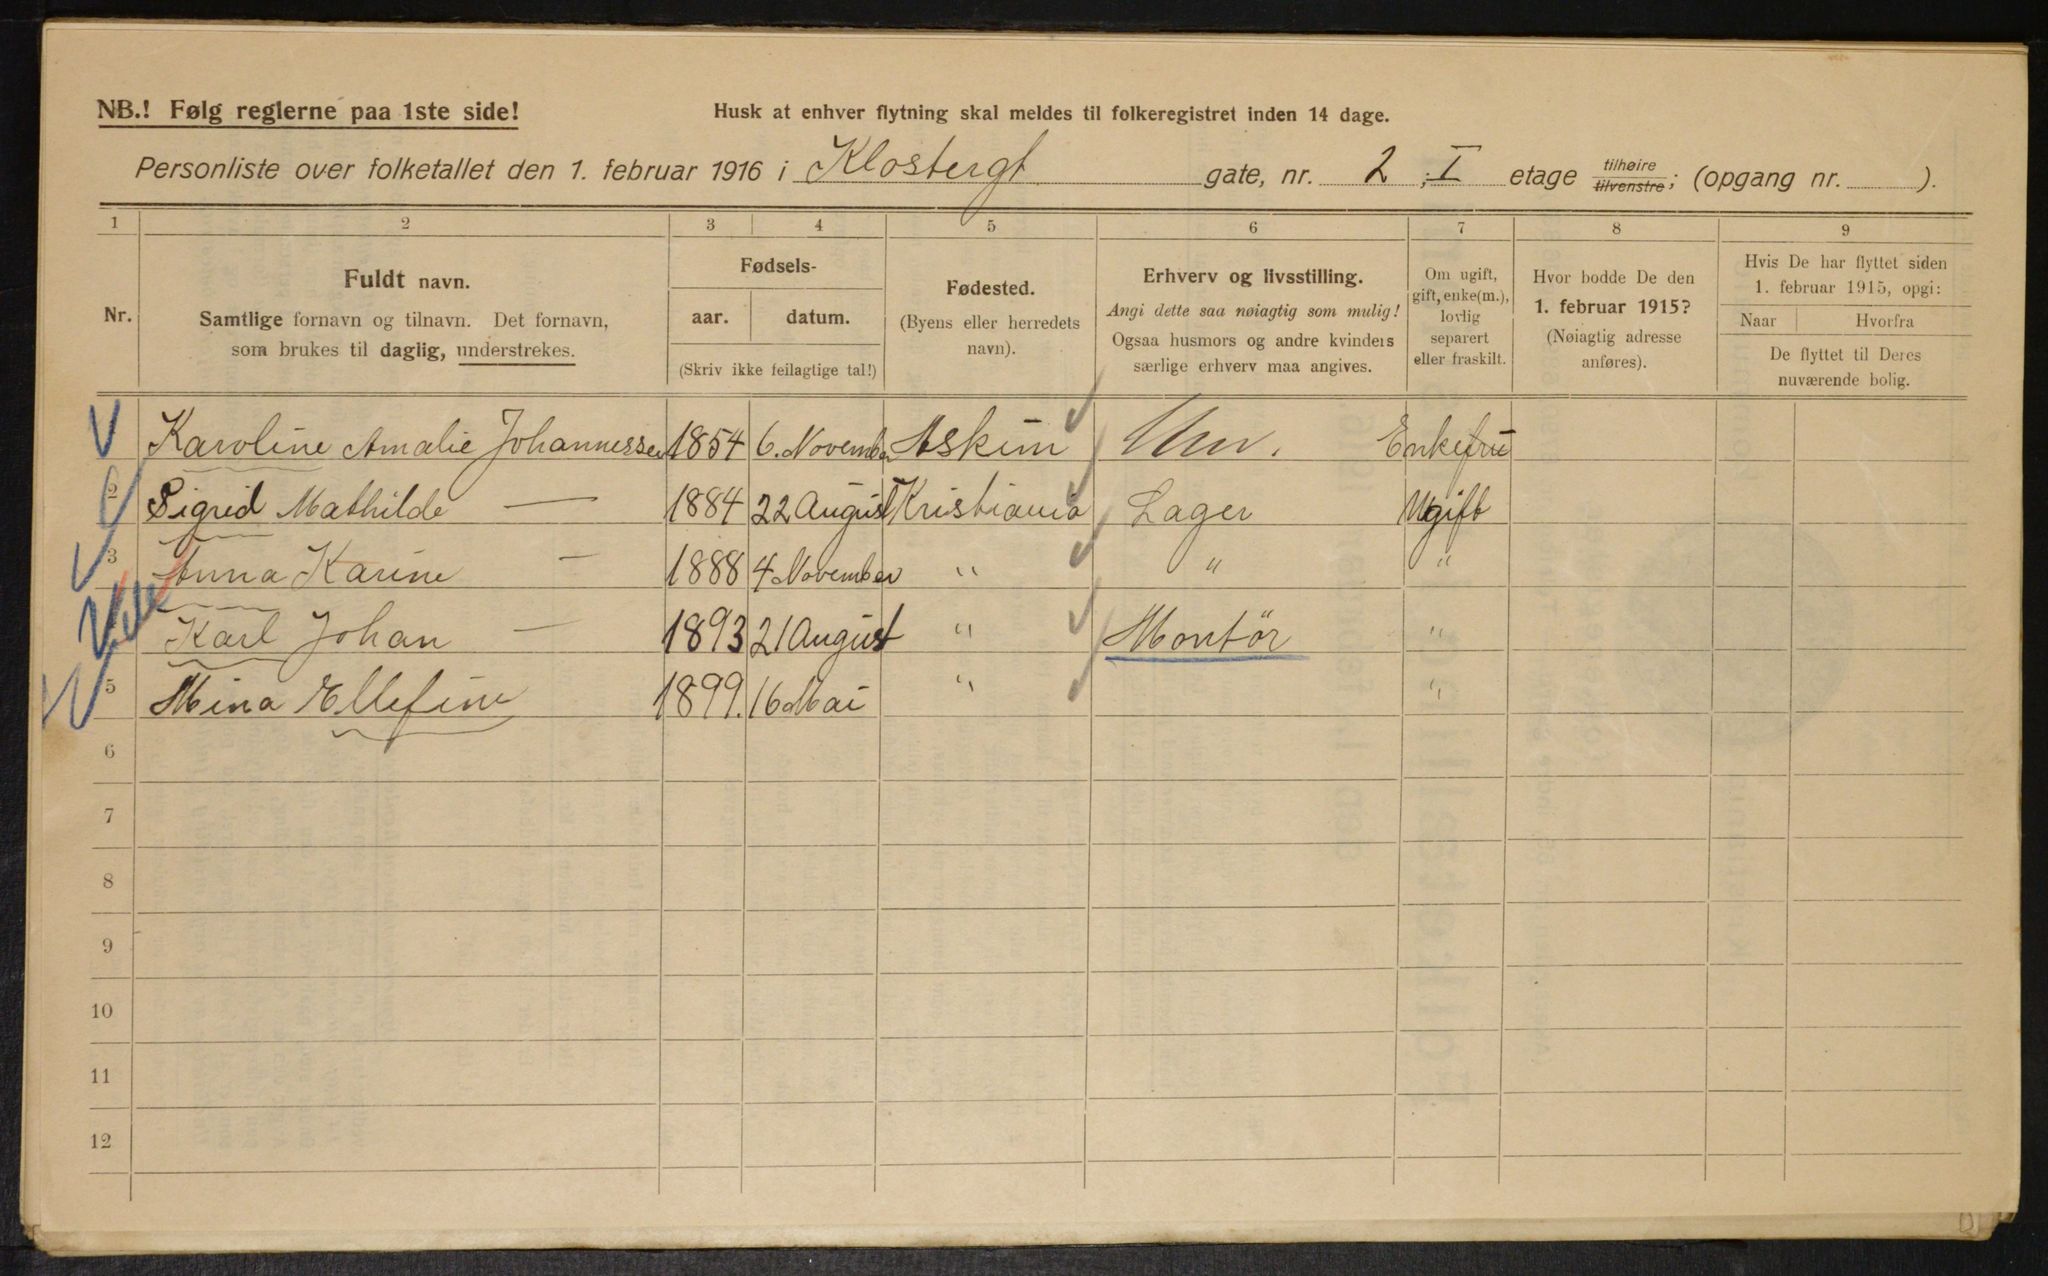 NB.! Følg reglerne paa 1ste side!
Husk at enhver flytning skal meldes til folkeregistret inden 14 dage.
Personliste over folketallet den 1. februar 1916 i Klostergt gate, nr. 2 ; I etage tilhøire tilvenstre; (opgang nr. ).
1 2 3 4 5 6 7 8 9
Nr.
Fuldt navn.
Samtlige fornavn og tilnavn. Det fornavn,
som brukes til daglig, understrekes.
Fødsels-
aar. datum.
(Skriv ikke feilagtige tal!)
Fødested.
(Byens eller herredets
navn).
Erhverv og livsstilling.
Angi dette saa nøiagtig som mulig!
Ogsaa husmors og andre kvinders
særlige erhverv maa angives.
Om ugift,
gift, enke(m.),
lovlig
separert
eller fraskilt.
Hvor bodde De den
1. februar 1915?
(Nøiagtig adresse
anføres).
Hvis De har flyttet siden
1. februar 1915, opgi:
Naar Hvorfra
De flyttet til Deres
nuværende bolig.
Karoline Amalie Johannessen 1854 6. November Askim Enkefru
2 Sigrid Mathilde — 1884 22 August Kristiania Lager Ugift
3 Anna Karine — 1888 4 November " " "
Karl Johan — 1893 21 August " Montör "
5 Mina Ellefine 1899. 16 Mai " "
6
7
8
9
10
11
12